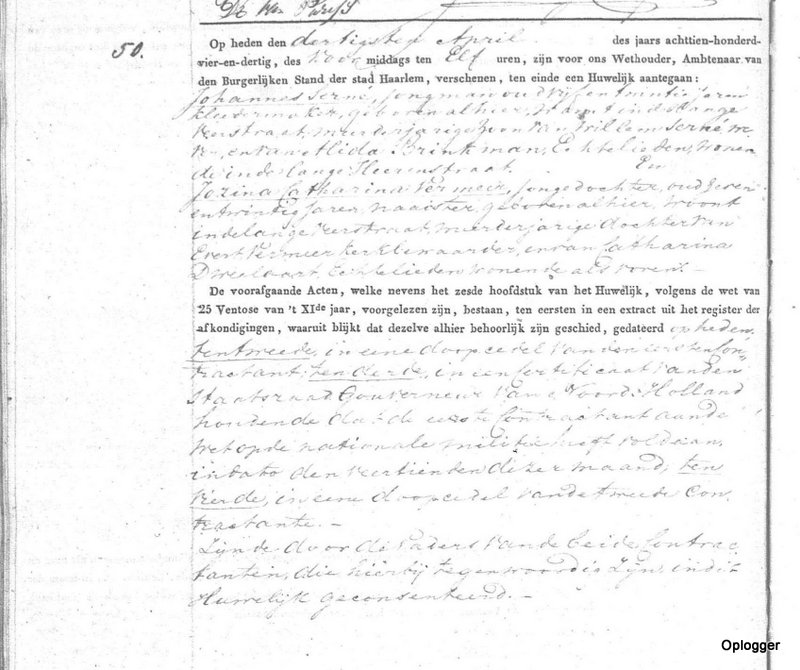 De Van Parijs
50.
Op heden den dertigsten April des jaars achttien-honderd-
vier-en-dertig, des voor middags ten Elf uren, zijn voor ons Wethouder, Ambtenaar van
den Burgerlijken Stand der stad Haarlem, verschenen, ten einde een Huwelijk aantegaan:
Johannes Serné, jongman oud vijfentwintig jaren
kleedermaker, geboren alhier, woont in de Lange
Veerstraat, meerderjarige zoon van Willem Serné
en van Alida Brinkman, Echtelieden, wonen
de in de Lange Heerenstraat. En
Jozina Catharina Vermeer, jongedochter, oud zeven
entwintig jaren, naaister, geboren alhier, woont
in de lange Veerstraat, meerderjarige dochter van
Evert Vermeer kerkbewaarder, en van Catharina
Echtelieden wonende als voren. —
De voorafgaande Acten, welke nevens het zesde hoofdstuk van het Huwelijk, volgens de wet van
25 Ventose van 't XIde jaar, voorgelezen zijn, bestaan, ten eersten in een extract uit het register der
afkondigingen, waaruit blijkt dat dezelve alhier behoorlijk zijn geschied, gedateerd op heden,
ten tweede, in eene doopcedel van den eersten Con-
tractant; ten derde, in een certificaat van den
Staatsraad Gouverneur van Noord-Holland
houdende dat de eerste Contractant aan de
wet op de nationale militie heeft voldaan,
in dato den veertienden dezer maand; ten
vierde, in eene doopcedel van de tweede Con-
tractante. —
Zijnde door de Vaders van de beide Contrac-
tanten, die hierbij tegenwoordig zijn, in dit
Huwelijk geconsenteerd. —
Oplogger